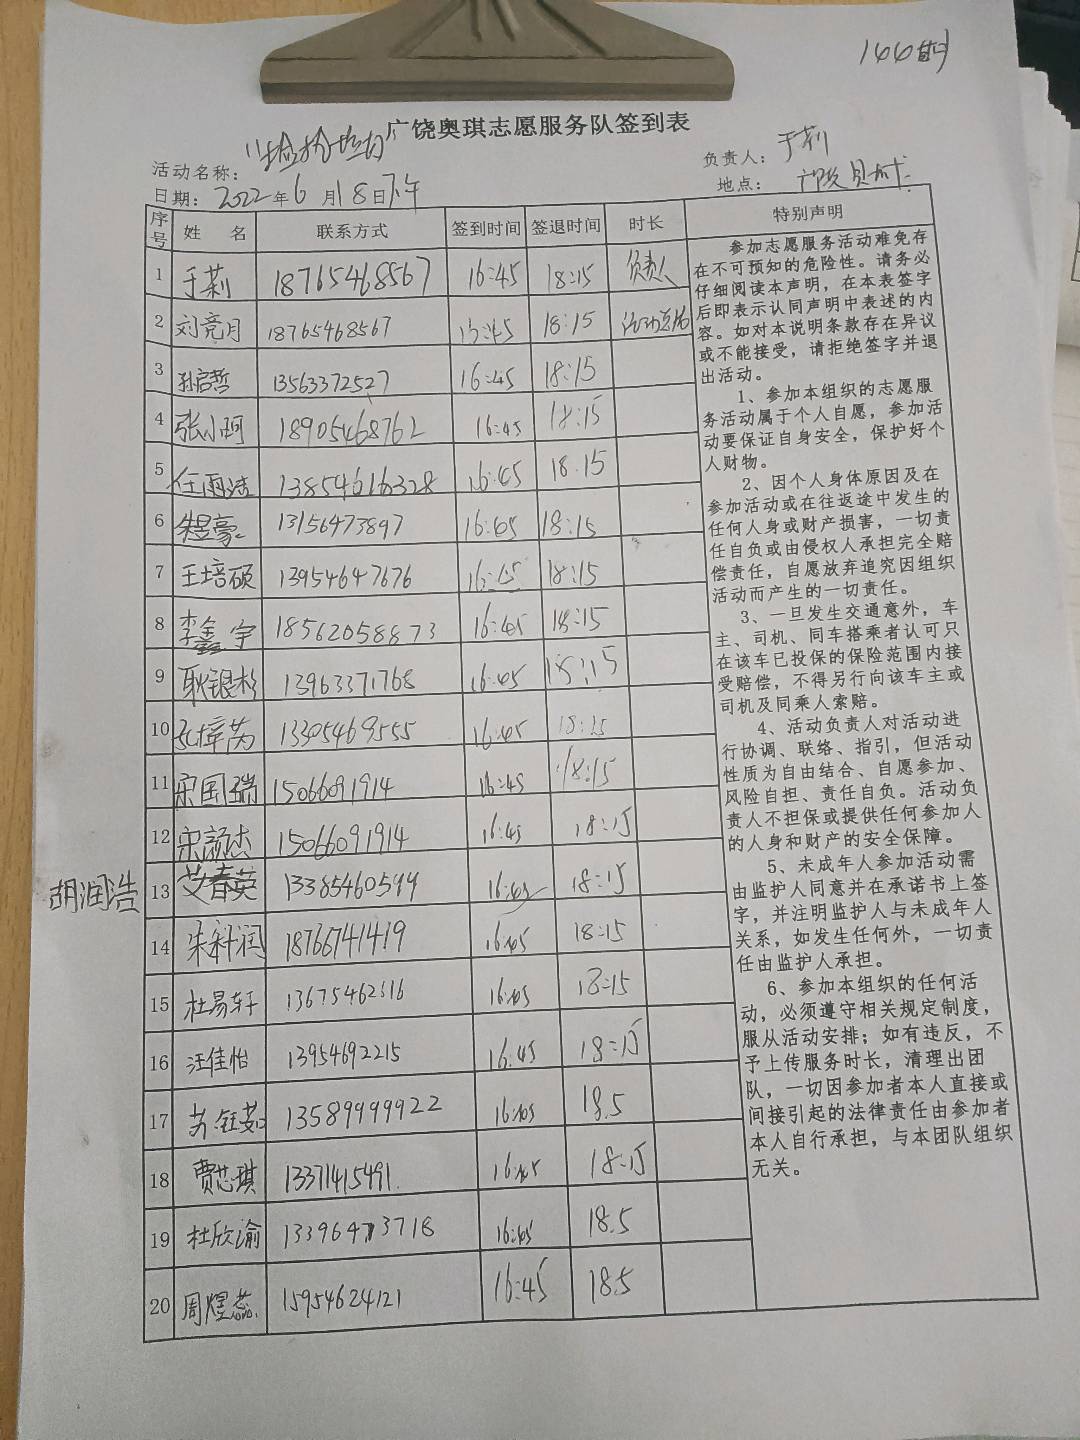 144期
广饶奥琪志愿服务队签到表
活动名称：
负责人：于莉
日期：2022年6月18日下午
地点：
序号 姓 名 联系方式 签到时间 签退时间 时长 特别声明
1 于莉 18765468567 16:45 18:15 负责人
2 刘竞月 18765468567 16:45 18:15 活动总结
3 孙启哲 13563372527 16:45 18:15
4 张小珂 18905468762 16:45 18:15
5 任雨洁 13854616328 16:45 18.15
6 朱昱豪 13156473897 16:45 18:15
7 王培硕 13954647676 16:45 18:15
8 李鑫宇 18562058873 16:45 18:15
9 耿银杉 13963371768 16:45 18:15
10 13305469555 16:45 18:15
11 宋国瑞 15066091914 16:45 18:15
12 宋颜杰 15066091914 16:45 18:15
胡润浩
13 艾春英 13385460599 16:45 18:15
14 朱科润 18766741419 16:45 18:15
15 杜易轩 13675462616 16:45 18:15
16 汪佳怡 13954692215 16:45 18:15
17 苏钰茹 13589999922 16:45 18.5
18 贾芯琪 13371415491. 16:45 18:15
19 杜欣谕 13396473718 16:45 18.5
20 周煜蕊 15954624121 16:45 18.5
参加志愿服务活动难免存
在不可预知的危险性。请务必
仔细阅读本声明，在本表签字
后即表示认同声明中表述的内
容。如对本说明条款存在异议
或不能接受，请拒绝签字并退
出活动。
1、参加本组织的志愿服
务活动属于个人自愿，参加活
动要保证自身安全，保护好个
人财物。
2、因个人身体原因及在
参加活动或在往返途中发生的
任何人身或财产损害，一切责
任自负或由侵权人承担完全赔
偿责任，自愿放弃追究因组织
活动而产生的一切责任。
3、一旦发生交通意外，车
主、司机、同车搭乘者认可只
在该车已投保的保险范围内接
受赔偿，不得另行向该车主或
司机及同乘人索赔。
4、活动负责人对活动进
行协调、联络、指引，但活动
性质为自由结合、自愿参加、
风险自担、责任自负。活动负
责人不担保或提供任何参加人
的人身和财产的安全保障。
5、未成年人参加活动需
由监护人同意并在承诺书上签
字，并注明监护人与未成年人
关系，如发生任何外，一切责
任由监护人承担。
6、参加本组织的任何活
动，必须遵守相关规定制度，
服从活动安排；如有违反，不
予上传服务时长，清理出团
队，一切因参加者本人直接或
间接引起的法律责任由参加者
本人自行承担，与本团队组织
无关。